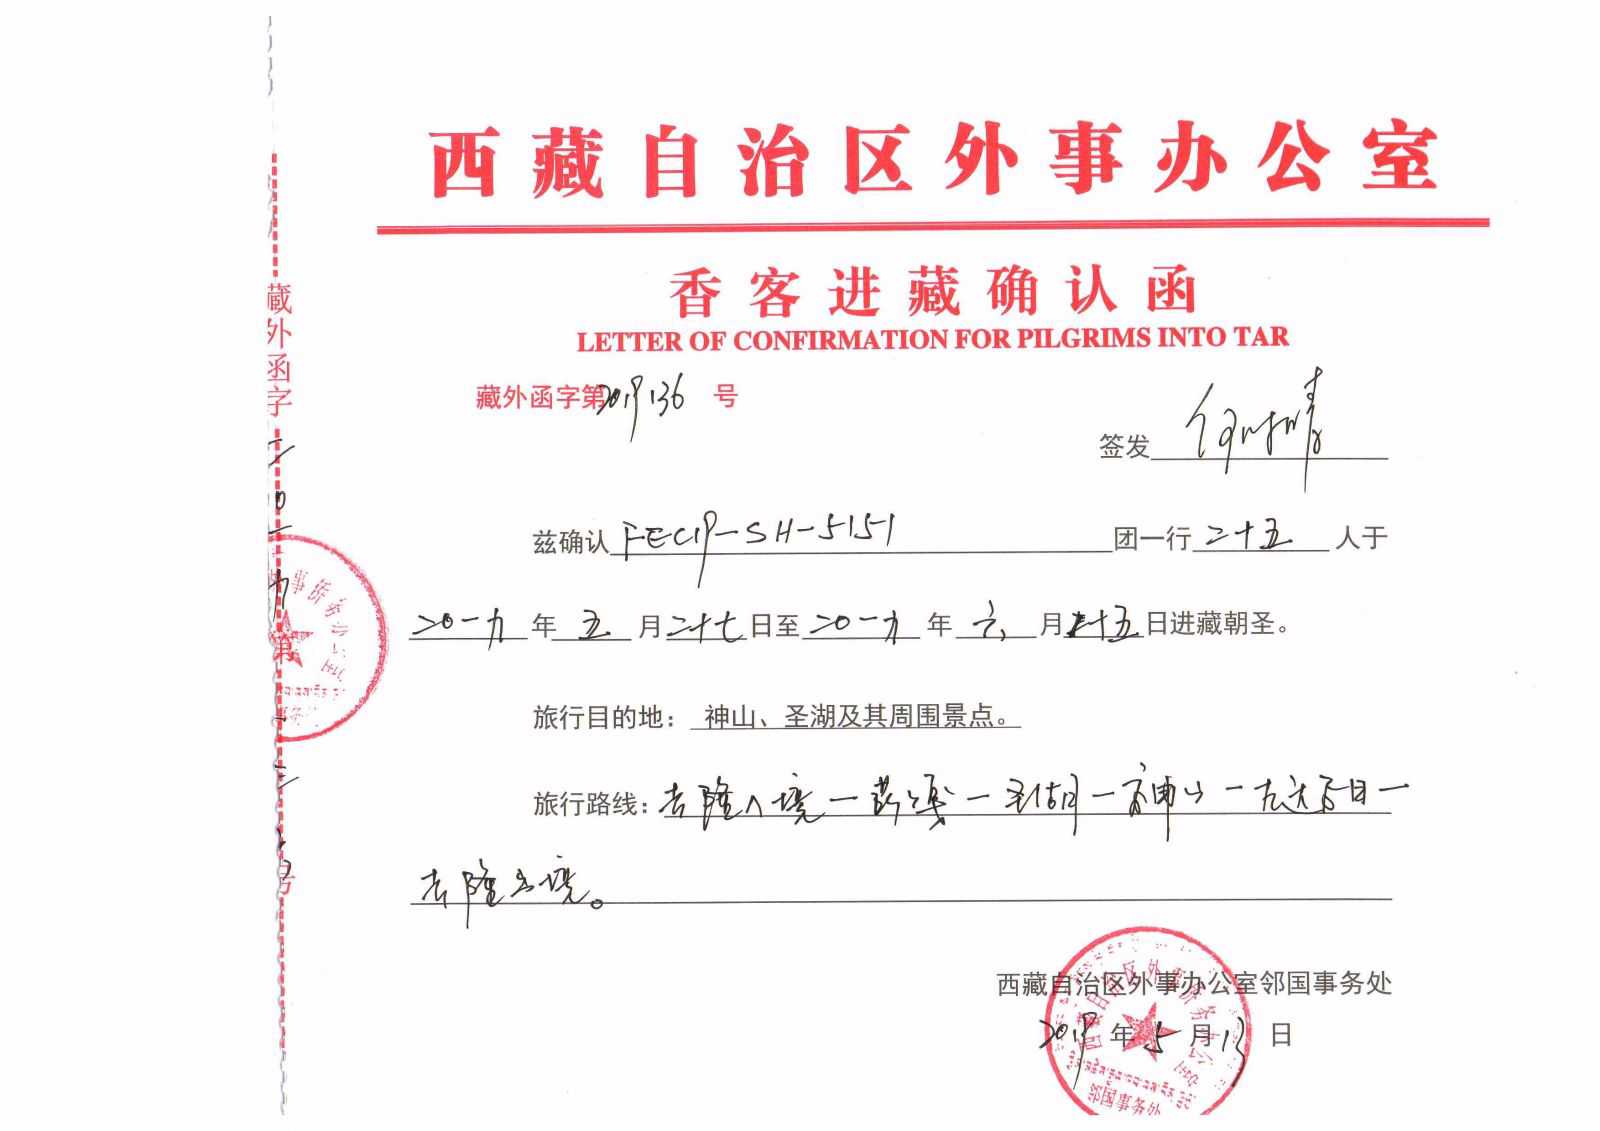 西藏自治区外事办公室
香客进藏确认函
LETTER OF CONFIRMATION FOR PILGRIMS INTO TAR
藏外函字第2019136号
签发
兹确认FECIP-SH-5151团一行二十五人于
二〇一九年五月二十七日至二〇一九年六月十五日进藏朝圣。
旅行目的地：神山、圣湖及其周围景点。
旅行路线：吉隆入境一萨嘎一圣湖一神山一
吉隆出境。
西藏自治区外事办公室邻国事务处
2019年5月13日
藏外函字
第
号